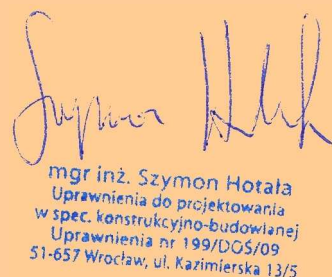 Szymon Hotała
mgr inż. Szymon Hotała
Uprawnienia do projektowania
w spec. konstrukcyjno-budowlanej
Uprawnienia nr 199/DOŚ/09
51-657 Wrocław, ul. Kazimierska 13/5